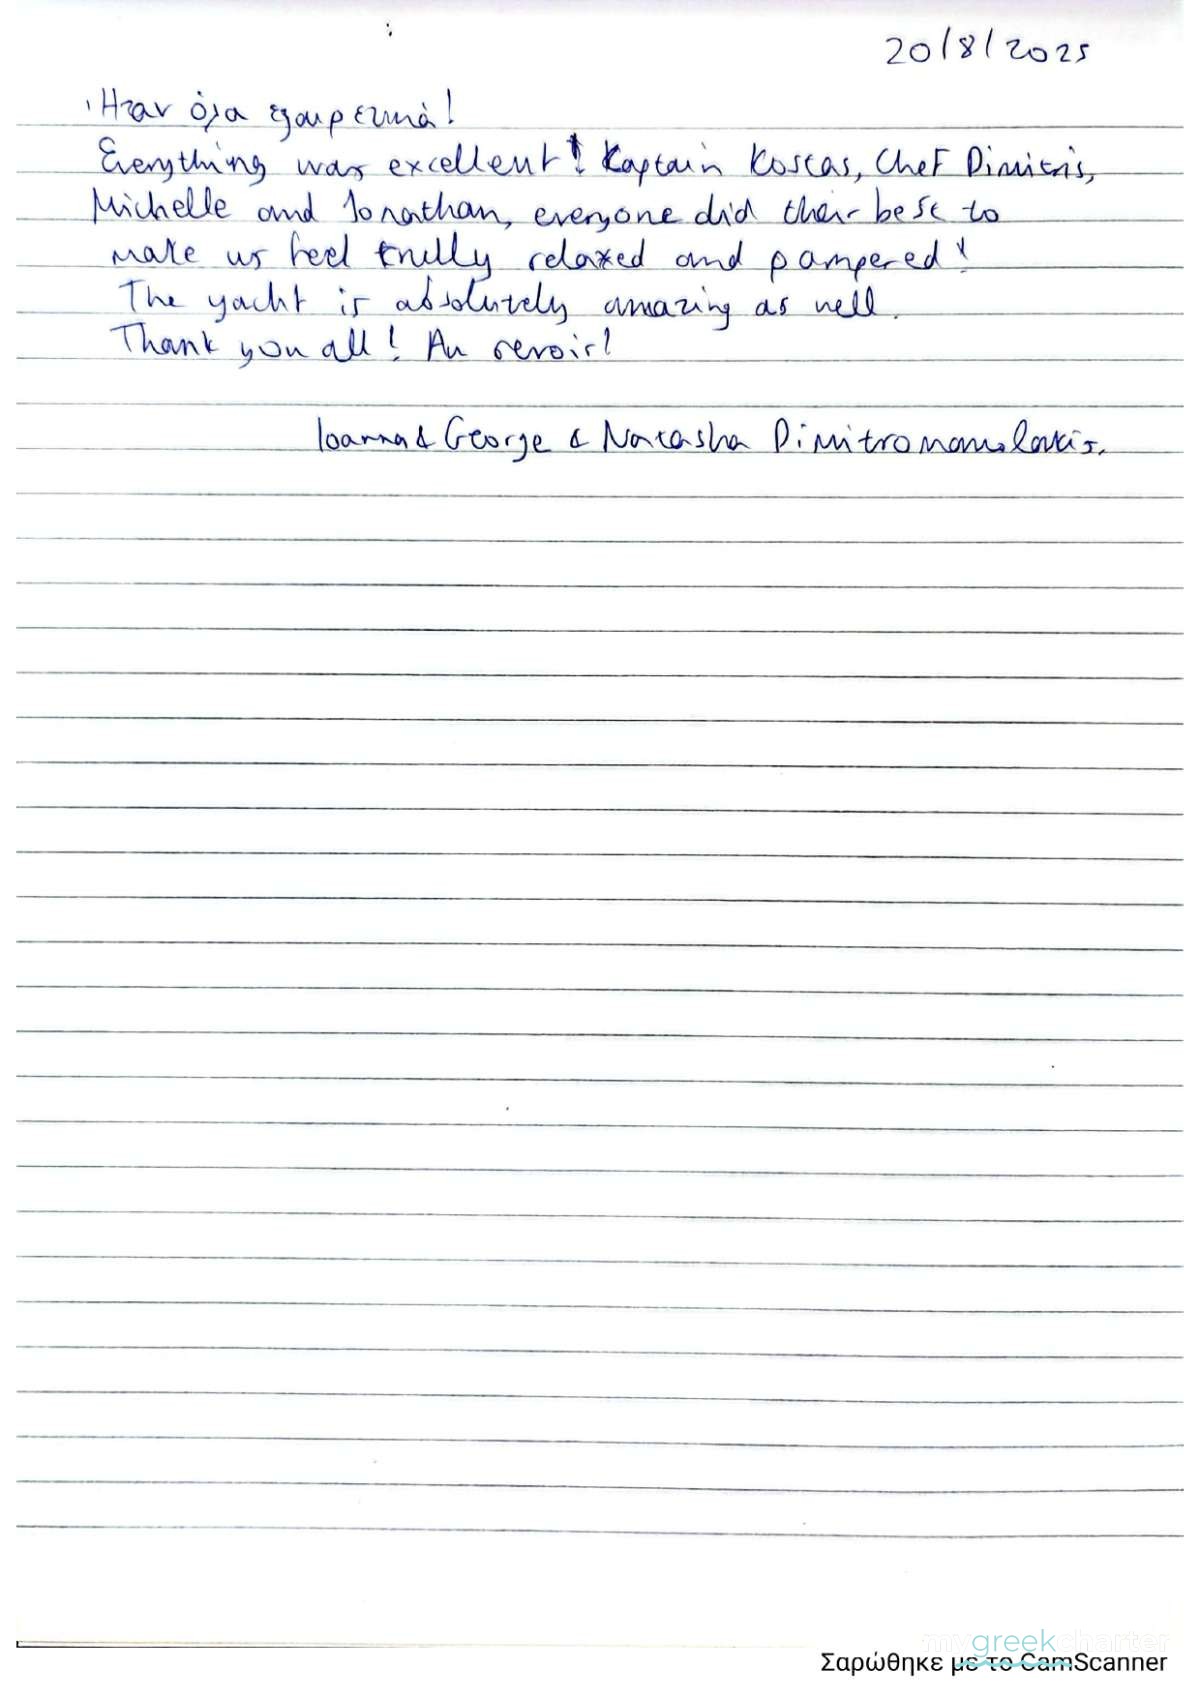 20/8/2025
Ήταν όλα εξαιρετικά!
Everything was excellent! Kaptain Kostas, Chef Dimitris,
Michelle and Jonathan, everyone did their best to
make us feel trully relaxed and pampered!
The yacht is absolutely amazing as well.
Thank you all! Au revoir!
Ioanna & George & Natasha Dimitromanolakis.
mygreekcharter
Σαρώθηκε με το CamScanner